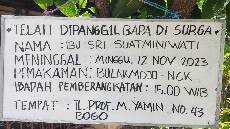 TELAH DIPANGGIL BAPA DI SURGA
NAMA : IBU SRI SUATMINIWATI
MENINGGAL : MINGGU, 12 NOV 2023
PEMAKAMAN : BULAKMOJO - NGK
IBADAH PEMBERANGKATAN : 15.00 WIB
TEMPAT : JL. PROF. M. YAMIN NO. 43
BOGO